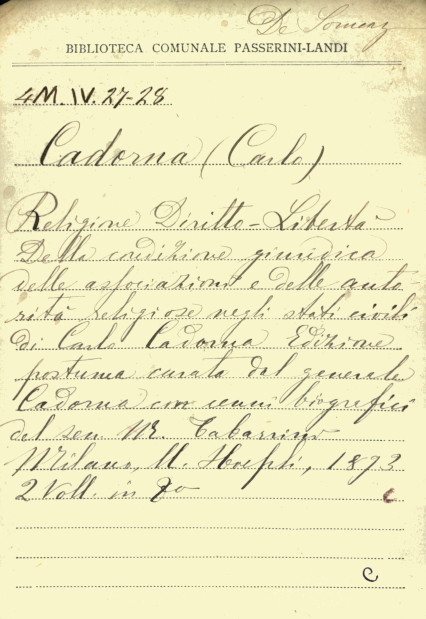 De Somenz
BIBLIOTECA COMUNALE PASSERINI-LANDI
4M.IV.27-28
Cadorna (Carlo)
Religione Diritto-Libertà
Della condizione giuridica
delle associazioni e delle auto-
rità religiose negli stati civili
di Carlo Cadorna Edizione
postuma curata dal generale
Cadorna con cenni biografici
del sen. M. Tabarrino
Milano, U. Hoepli, 1893
2 Voll. in 8o
C
C